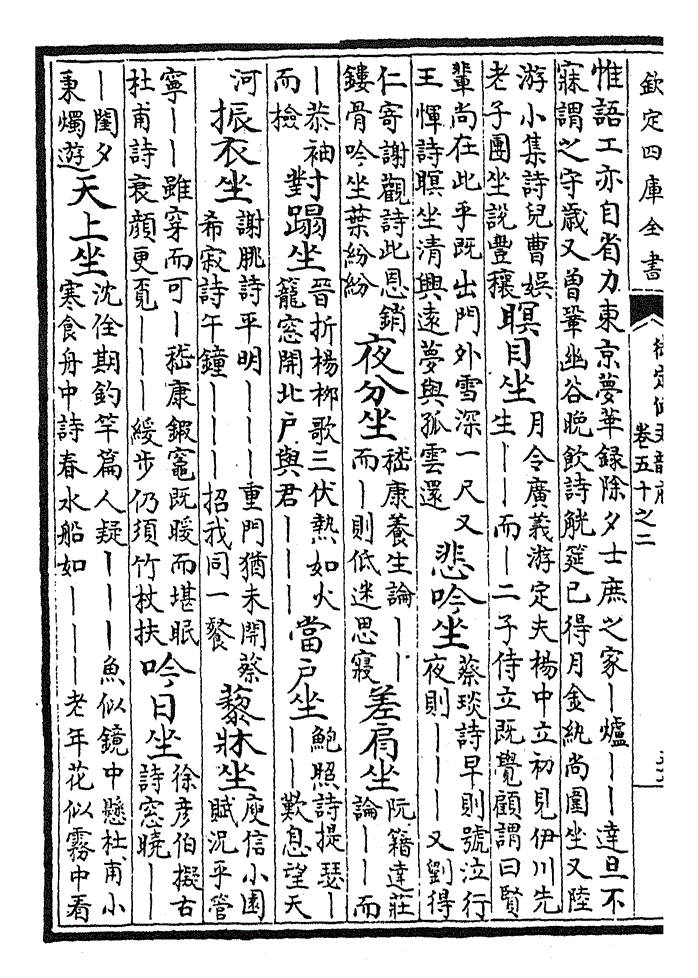 欽定四庫全書
卷五十之二
惟語工亦自省力東京夢華録除夕士庶之家丨爐丨丨達旦不
寐謂之守歲又曽鞏幽谷晚飲詩觥筵已得月金紈尚圍坐又陸
游小集詩兒曹娛
老子團坐說豐穰
瞑目坐
月令廣義游定夫楊中立初見伊川先
生丨丨而丨二子侍立既覺顧謂曰賢
輩尚在此乎既出門外雪深一尺又
王惲詩瞑坐清興遠夢與孤雲還
悲吟坐
蔡琰詩早則號泣行
夜則丨丨丨又劉得
仁寄謝觀詩此恩銷
鏤骨吟坐葉紛紛
夜分坐
嵇康養生論丨丨
而丨則低迷思寢
差肩坐
阮籍達莊
論丨丨而
丨恭袖
而檢
對蹋坐
晉折楊栁歌三伏熱如火
籠窓開北户與君丨丨丨
當户坐
鮑照詩提瑟丨
丨丨歎息望天
河
振衣坐
謝朓詩平明丨丨丨重門猶未開蔡
希寂詩午鐘丨丨丨招我同一餐
藜牀坐
庾信小園
賦況乎管
寧丨丨雖穿而可丨嵇康鍜竈既暖而堪眠
杜甫詩衰顔更覓丨丨丨緩步仍須竹杖扶
吟日坐
徐彦伯擬古
詩窓曉丨丨
丨閨夕
秉燭遊
天上坐
沈佺期釣竿篇人疑丨丨丨魚似鏡中懸杜甫小
寒食舟中詩春水船如丨丨丨老年花似霧中看